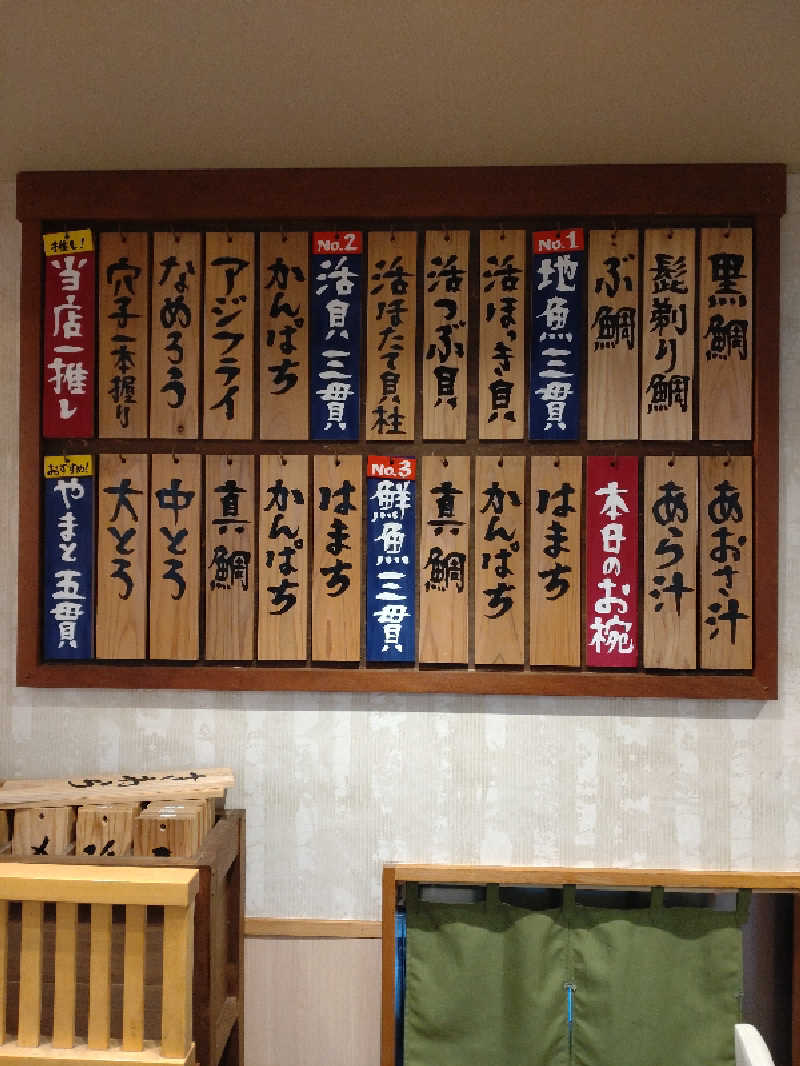 黒鯛
髭剃り鯛
ぶ鯛
No.1
地魚三貫
活ほっき貝
活つぶ貝
活ほたて貝柱
No.2
活貝三貫
かんぱち
アジフライ
なめろう
穴子一本握り
推し!
当店一推し
あおさ汁
あら汁
本日のお椀
はまち
かんぱち
真鯛
No.3
鮮魚三貫
はまち
かんぱち
真鯛
中とろ
大とろ
おすすめ!
やまと五貫